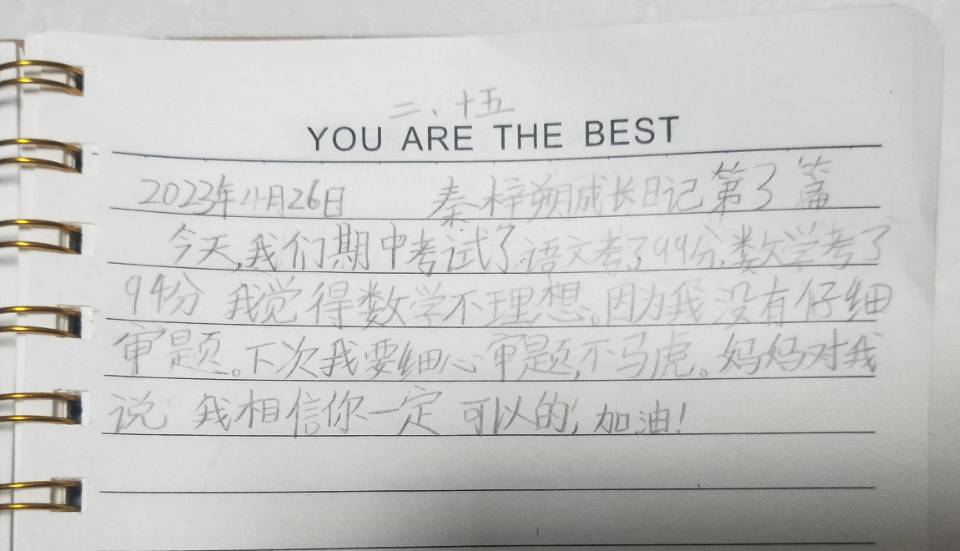 二、十五
YOU ARE THE BEST
2023年4月26日 秦梓朔成长日记第3篇
今天,我们期中考试了.语文考了99分.数学考了
94分 我觉得数学不理想。因为我没有仔细
审题。下次我要细心审题,不马虎。妈妈对我
说 我相信你一定可以的,加油!